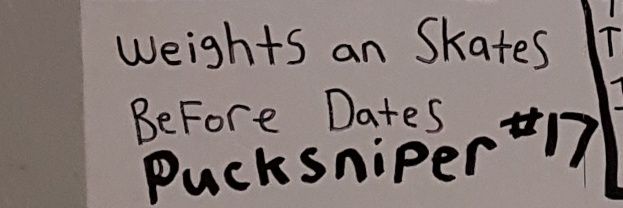 Weights an Skates
Before Dates
Pucksniper #17